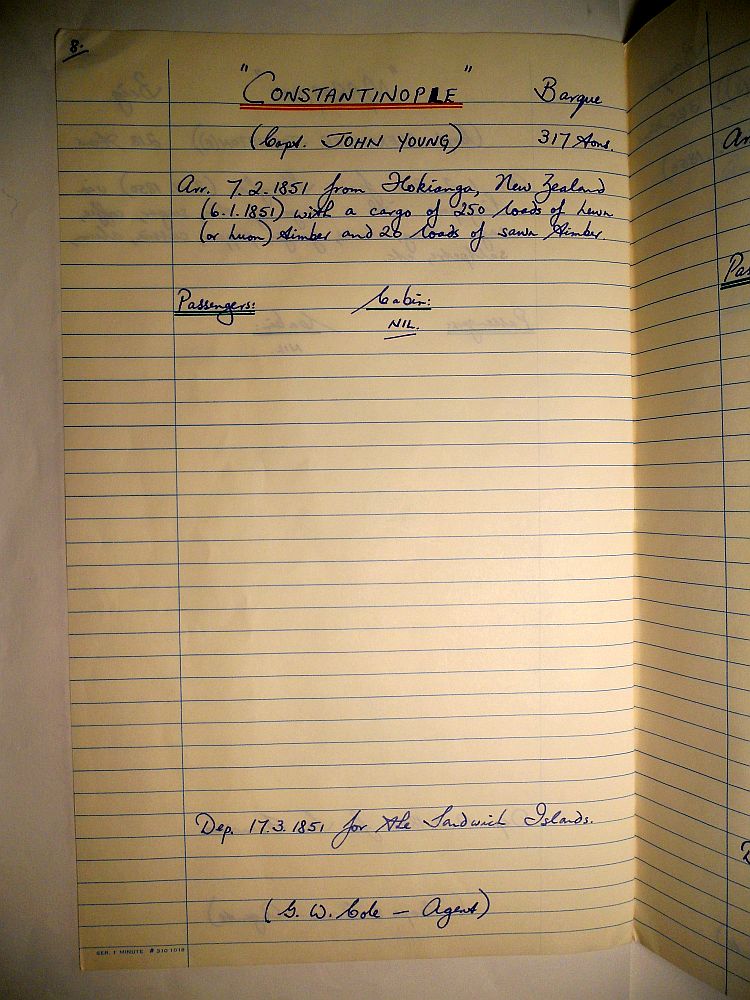 8.
"CONSTANTINOPLE" Barque
(Capt. JOHN YOUNG) 317 tons.
Arr. 7.2.1851 from Hokianga, New Zealand
(6.1.1851) with a cargo of 250 loads of hewn
(or huon) timber and 20 loads of sawn timber.
Passengers: Cabin:
NIL.
Dep. 17.3.1851 for the Sandwich Islands.
(G. W. Cole — Agent)
GER. 1 MINUTE # 310 1018